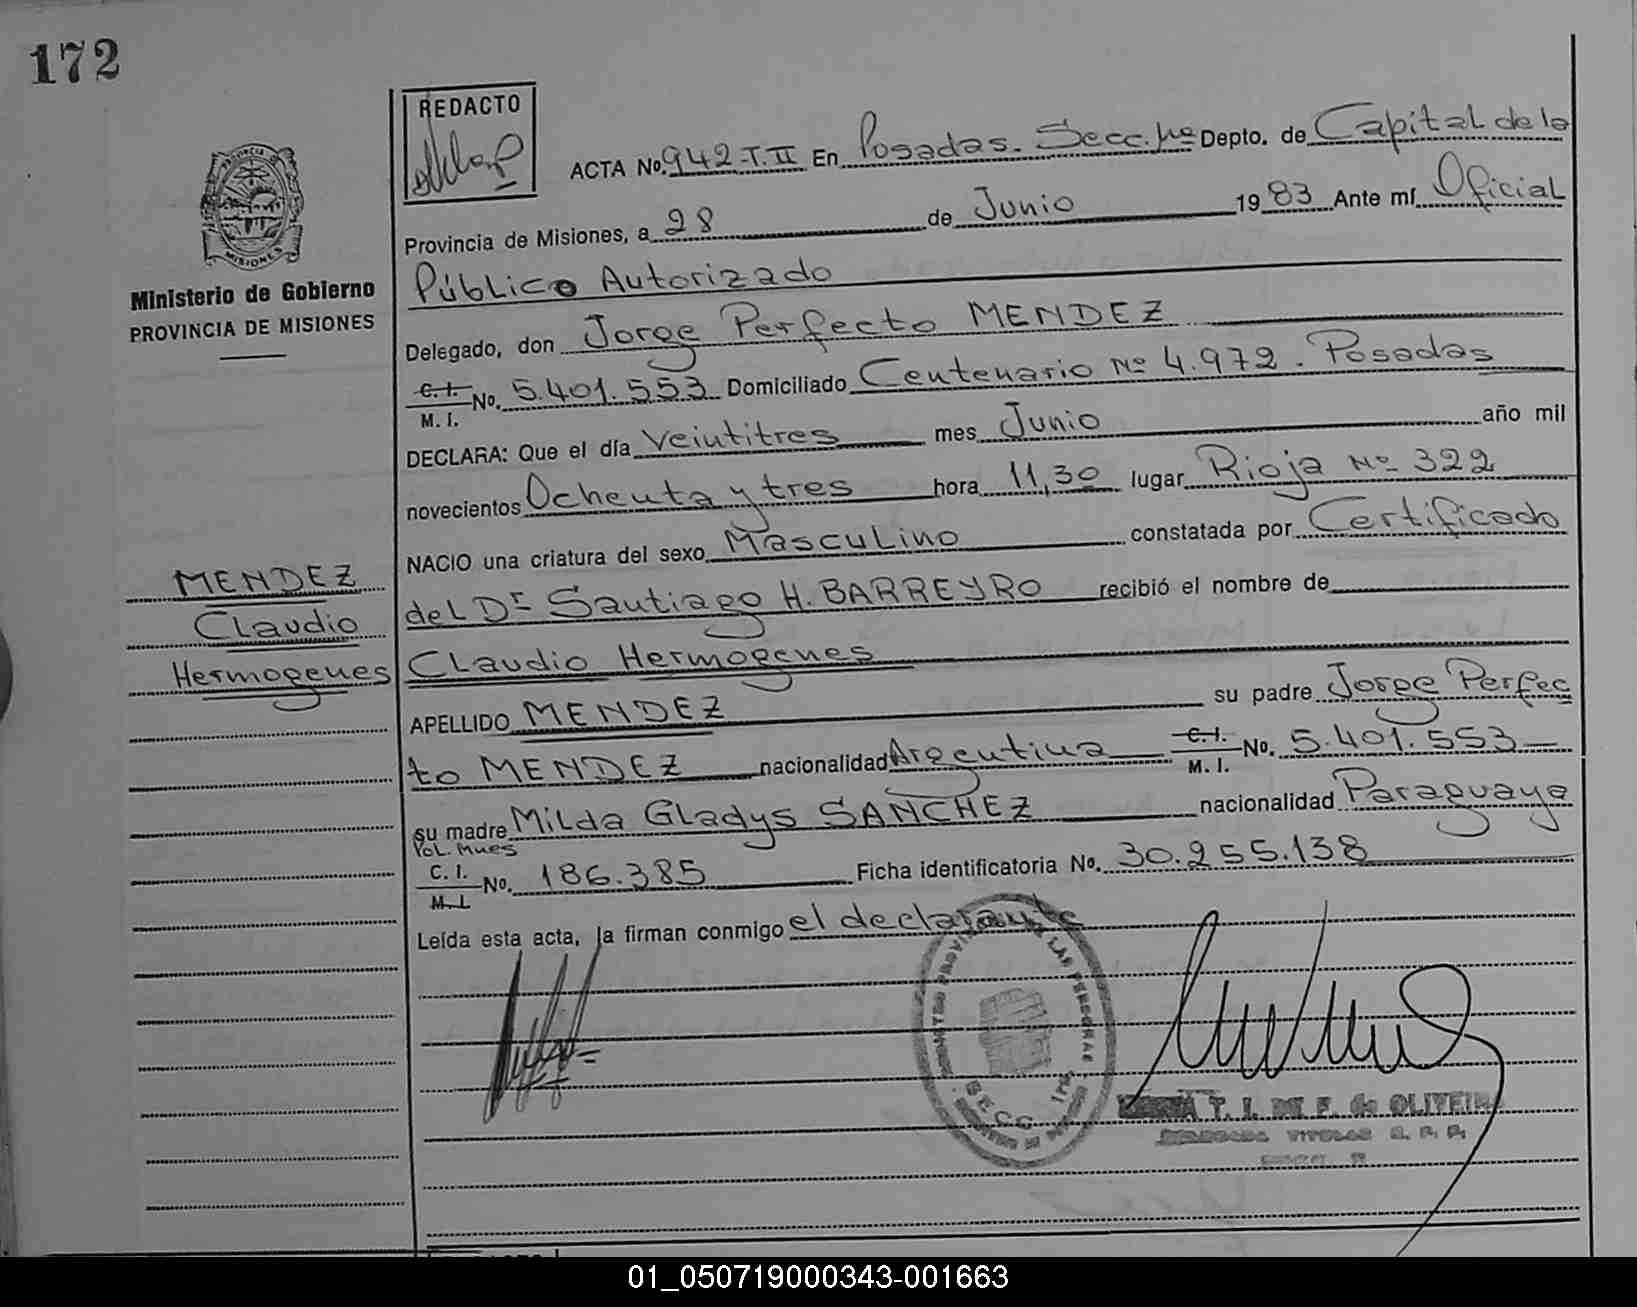 172
REDACTO
ACTA No. 942-T.II En Posadas. Secc. 1ra Depto. de Capital de la
Provincia de Misiones, a 28 de Junio 1983 Ante mí Oficial
Público Autorizado
Delegado, don Jorge Perfecto MENDEZ
C.I. M.I. No. 5.401.553 Domiciliado Centenario Nº 4.972. Posadas
DECLARA: Que el día veintitres mes Junio año mil
novecientos Ochenta y tres hora 11,30 lugar Rioja Nº 322
NACIO una criatura del sexo Masculino constatada por Certificado
del Dr Santiago H. BARREYRO recibió el nombre de
Claudio Hermogenes
APELLIDO MENDEZ su padre Jorge Perfec
to MENDEZ nacionalidad Argentina C.I. M.I. No. 5.401.553
su madre Milda Gladys SANCHEZ nacionalidad Paraguaya
Pol. Mnes
C.I. M.I. No. 186.385 Ficha identificatoria No. 30.255.138
Leída esta acta, la firman conmigo el declarante
PROVINCIA DE MISIONES
Ministerio de Gobierno
PROVINCIA DE MISIONES
MENDEZ
Claudio
Hermogenes
LAS PERSONAS
SECC. 1ra
T. I. DE F. de OLIVEIRA
TITULAR R. P. P.
01_050719000343-001663